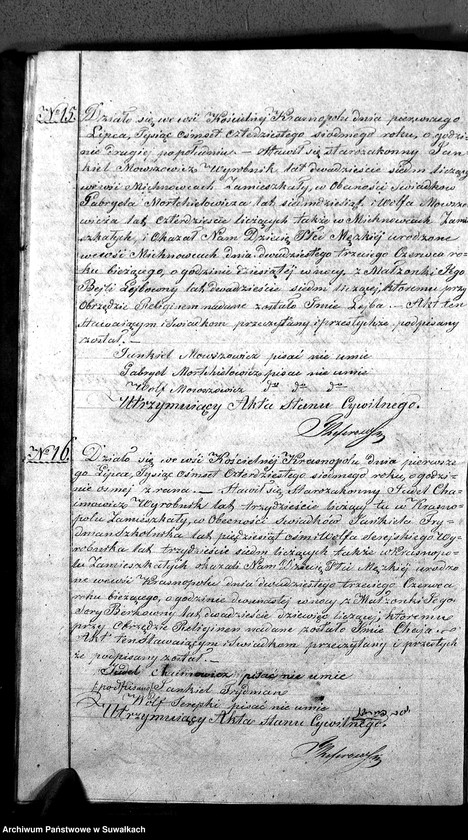 No 15.
Działo się we wsi Kościelny Krasnopolu dnia pierwszego
Lipca, Tysiąc ośmset czterdziestego siódmego roku, o godzi-
nie drugiej po południu. — Stawił się starozakonny Jan-
kiel Mowszowicz Wyrobnik lat dwadzieścia siedm liczący
we wsi Michnowcach Zamieszkały, w Obecności Świadków
Gabryela Mortchelowicza lat siedmdziesiąt i Wolfa Mowszo-
wicza lat Czterdzieście liczących także w Michnowcach Zamie-
szkałych, i Okazał Nam Dziecię Płci Męzkiej urodzone
we wsi Michnowcach dnia dwudziestego trzeciego Czerwca ro-
ku bieżącego, o godzinie dziesiątej w nocy, z Małżonki Jego
Bejli Lejbowny lat dwadzieścia siedm liczącej, któremu przy
Obrzędzie Religijnem nadane zostało Imie Lejba. — Akt ten
stawaiącym i świadkom przeczytany i przez tychże podpisany
został. —
Jankiel Mowszowicz pisać nie umie
Gabryel Mortchelowicz pisać nie umie
Wolf Mowszowicz do do do
Utrzymujący Akta Stanu Cywilnego.
No 16.
Działo się we wsi Kościelnej Krasnopolu dnia pierwsze-
go Lipca, Tysiąc ośmset Czterdziestego siódmego roku, o godzi-
nie osmej z rana. — Stawił się Starozakonny Judel Cha-
imowicz Wyrobnik lat trzydzieście liczący tu w Krasno-
polu Zamieszkały, w Obecności Świadków Jankiela Fry-
dmana Szkolnika lat piędziesiąt ośm i Wolfa Serejskiego Wy-
robnika lat trzydzieście siedm liczących także w Krasnopo-
lu Zamieszkałych okazał Nam Dziecię Płci Męzkiej urodzo-
ne we wsi Krasnopolu dnia dwudziestego trzeciego Czerwca
roku bieżącego, o godzinie dwunastej w nocy z Małżonki Jego
Sory Berkowny lat dwadzieścia dziewięć liczącej, któremu
przy Obrzędzie Religijnem nadane zostało Imie
Akt ten Stawaiącym i Świadkom przeczytany i przez tych-
że podpisany został. —
Judel Chaimowicz pisać nie umie
(podpisano) Jankiel Frydman
Wolf Serejski pisać nie umie
Utrzymujący Akta Stanu Cywilnego.
Archiwum Państwowe w Suwałkach